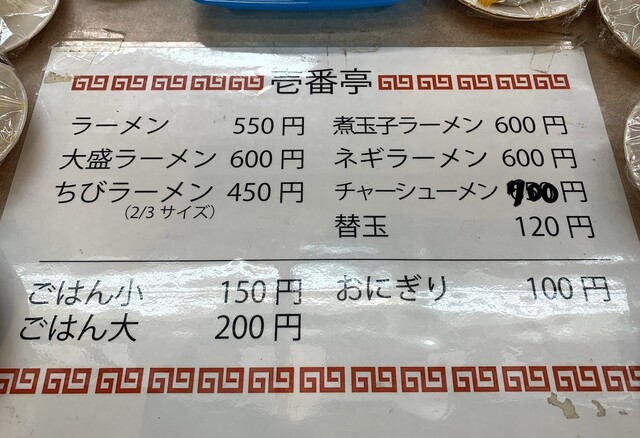 壱番亭
ラーメン 550円
大盛ラーメン 600円
ちびラーメン 450円
(2/3 サイズ)
煮玉子ラーメン 600円
ネギラーメン 600円
チャーシューメン 円
替玉 120円
ごはん小 150円
ごはん大 200円
おにぎり 100円